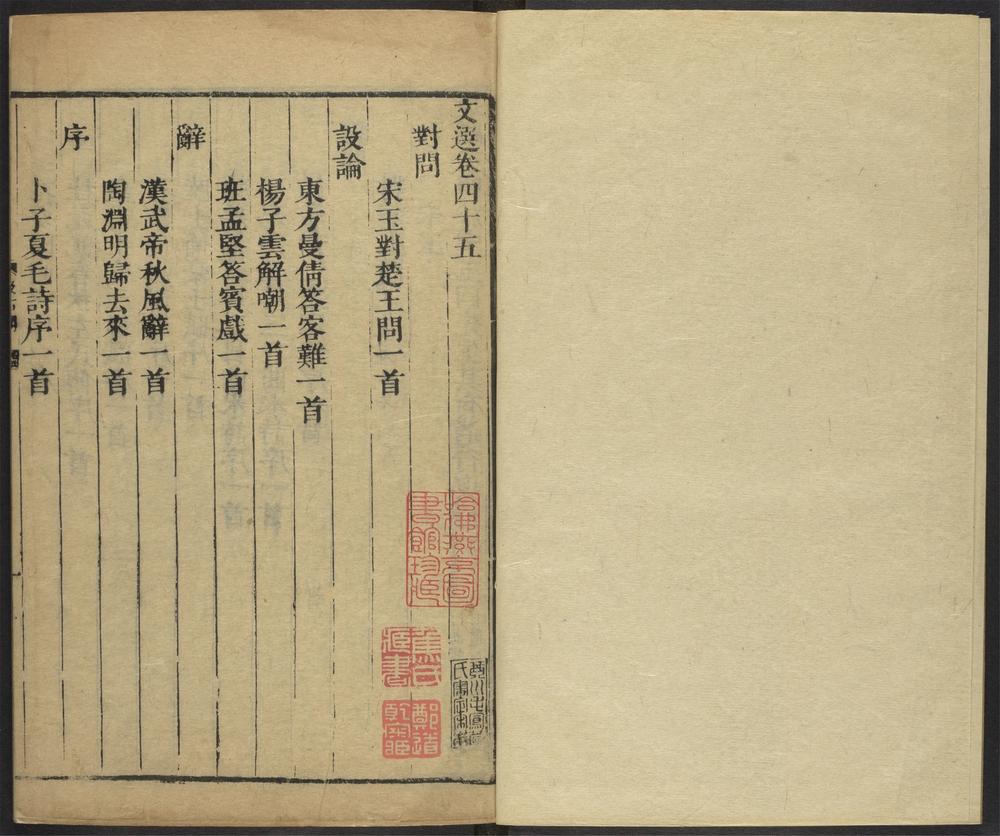 文選卷四十五
對問
宋玉對楚王問一首
設論
東方曼倩答客難一首
楊子雲解嘲一首
班孟堅答賓戲一首
辭
漢武帝秋風辭一首
陶淵明歸去來一首
序
卜子夏毛詩序一首
哈佛燕京圖
書館珍藏
蕉氏
藏書
鄭道
乾